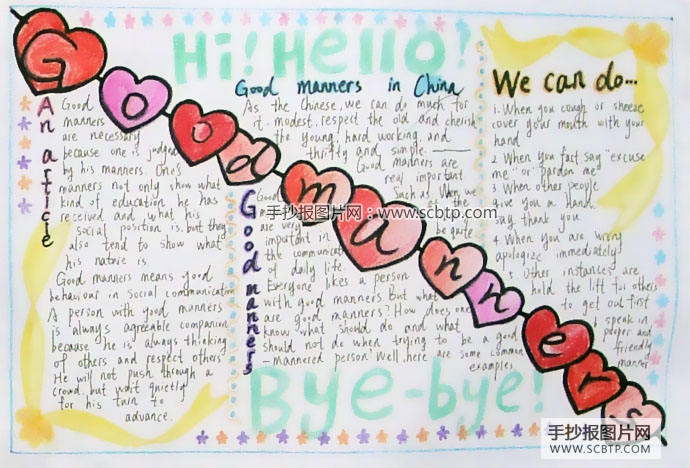 Hi! Hello!
Good manners
An article
Good
manners
are necessary
because one is judged
by his manners. One's
manners not only show what
kind of education he has
received and what his
social position is, but they
also tend to show what
his nature is.
Good manners means good
behaviour in social communication
A person with good manners
is always agreeable companion
because he is always thinking
of others and respect others
He will not push through a
crowd, but wait quietly
for his turn to
advance.
Good manners in China
As the Chinese, we can do much for
it. modest, respect the old and cherish
the young, hard working, and
thrifty and simple.
Good manners are
real important
Such as When we
the
be quite
Good manners
Good
are very
important in
the communicat
of daily life
Everyone likes a person
with good manners But what
are good manners? How does one
know what should do and what
should not do when trying to be a good
-mannered person? Well, here are some common
examples
We can do...
1. When you cough or sheeze
cover your mouth with your
hand
2. When you fact, say "excuse
me" or "pardon me
3. When other people
give you a hand.
say thank you
4. When you are wrong
apologize immediately
5. Other instances are
hold the lift for others
to get out first
speak in
proper and
friendly
manner
Bye-bye!
手抄报图片网：www.scbtp.com
手抄报图片网
WWW.SCBTP.COM